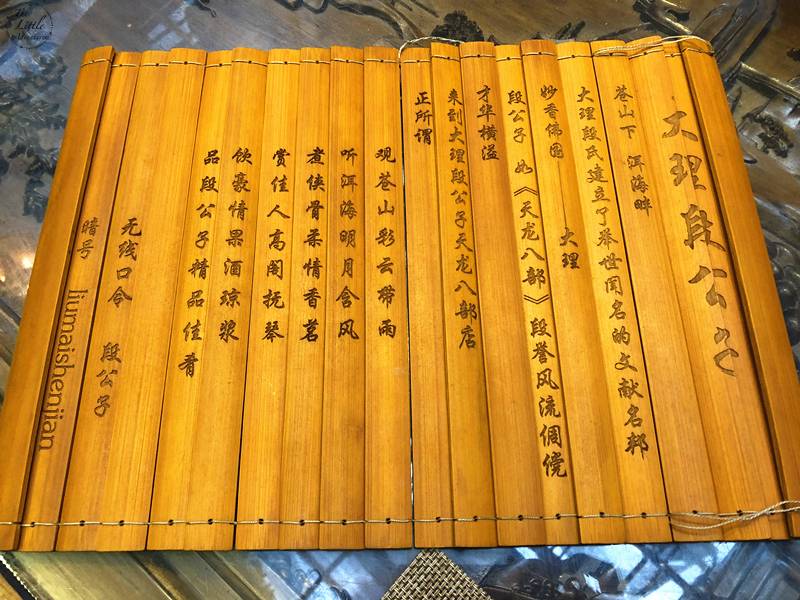 大理段公子
苍山下 洱海畔
大理段氏建立了举世闻名的文献名邦
妙香佛国 —— 大理
段公子 如《天龙八部》段誉风流倜傥
才华横溢
来到大理段公子天龙八部店
正所谓
观苍山彩云带雨
听洱海明月含风
煮侠骨柔情香茗
赏佳人高阁抚琴
饮豪情果酒琼浆
品段公子精品佳肴
无线口令 段公子
暗号 liumaishenjian
The Little